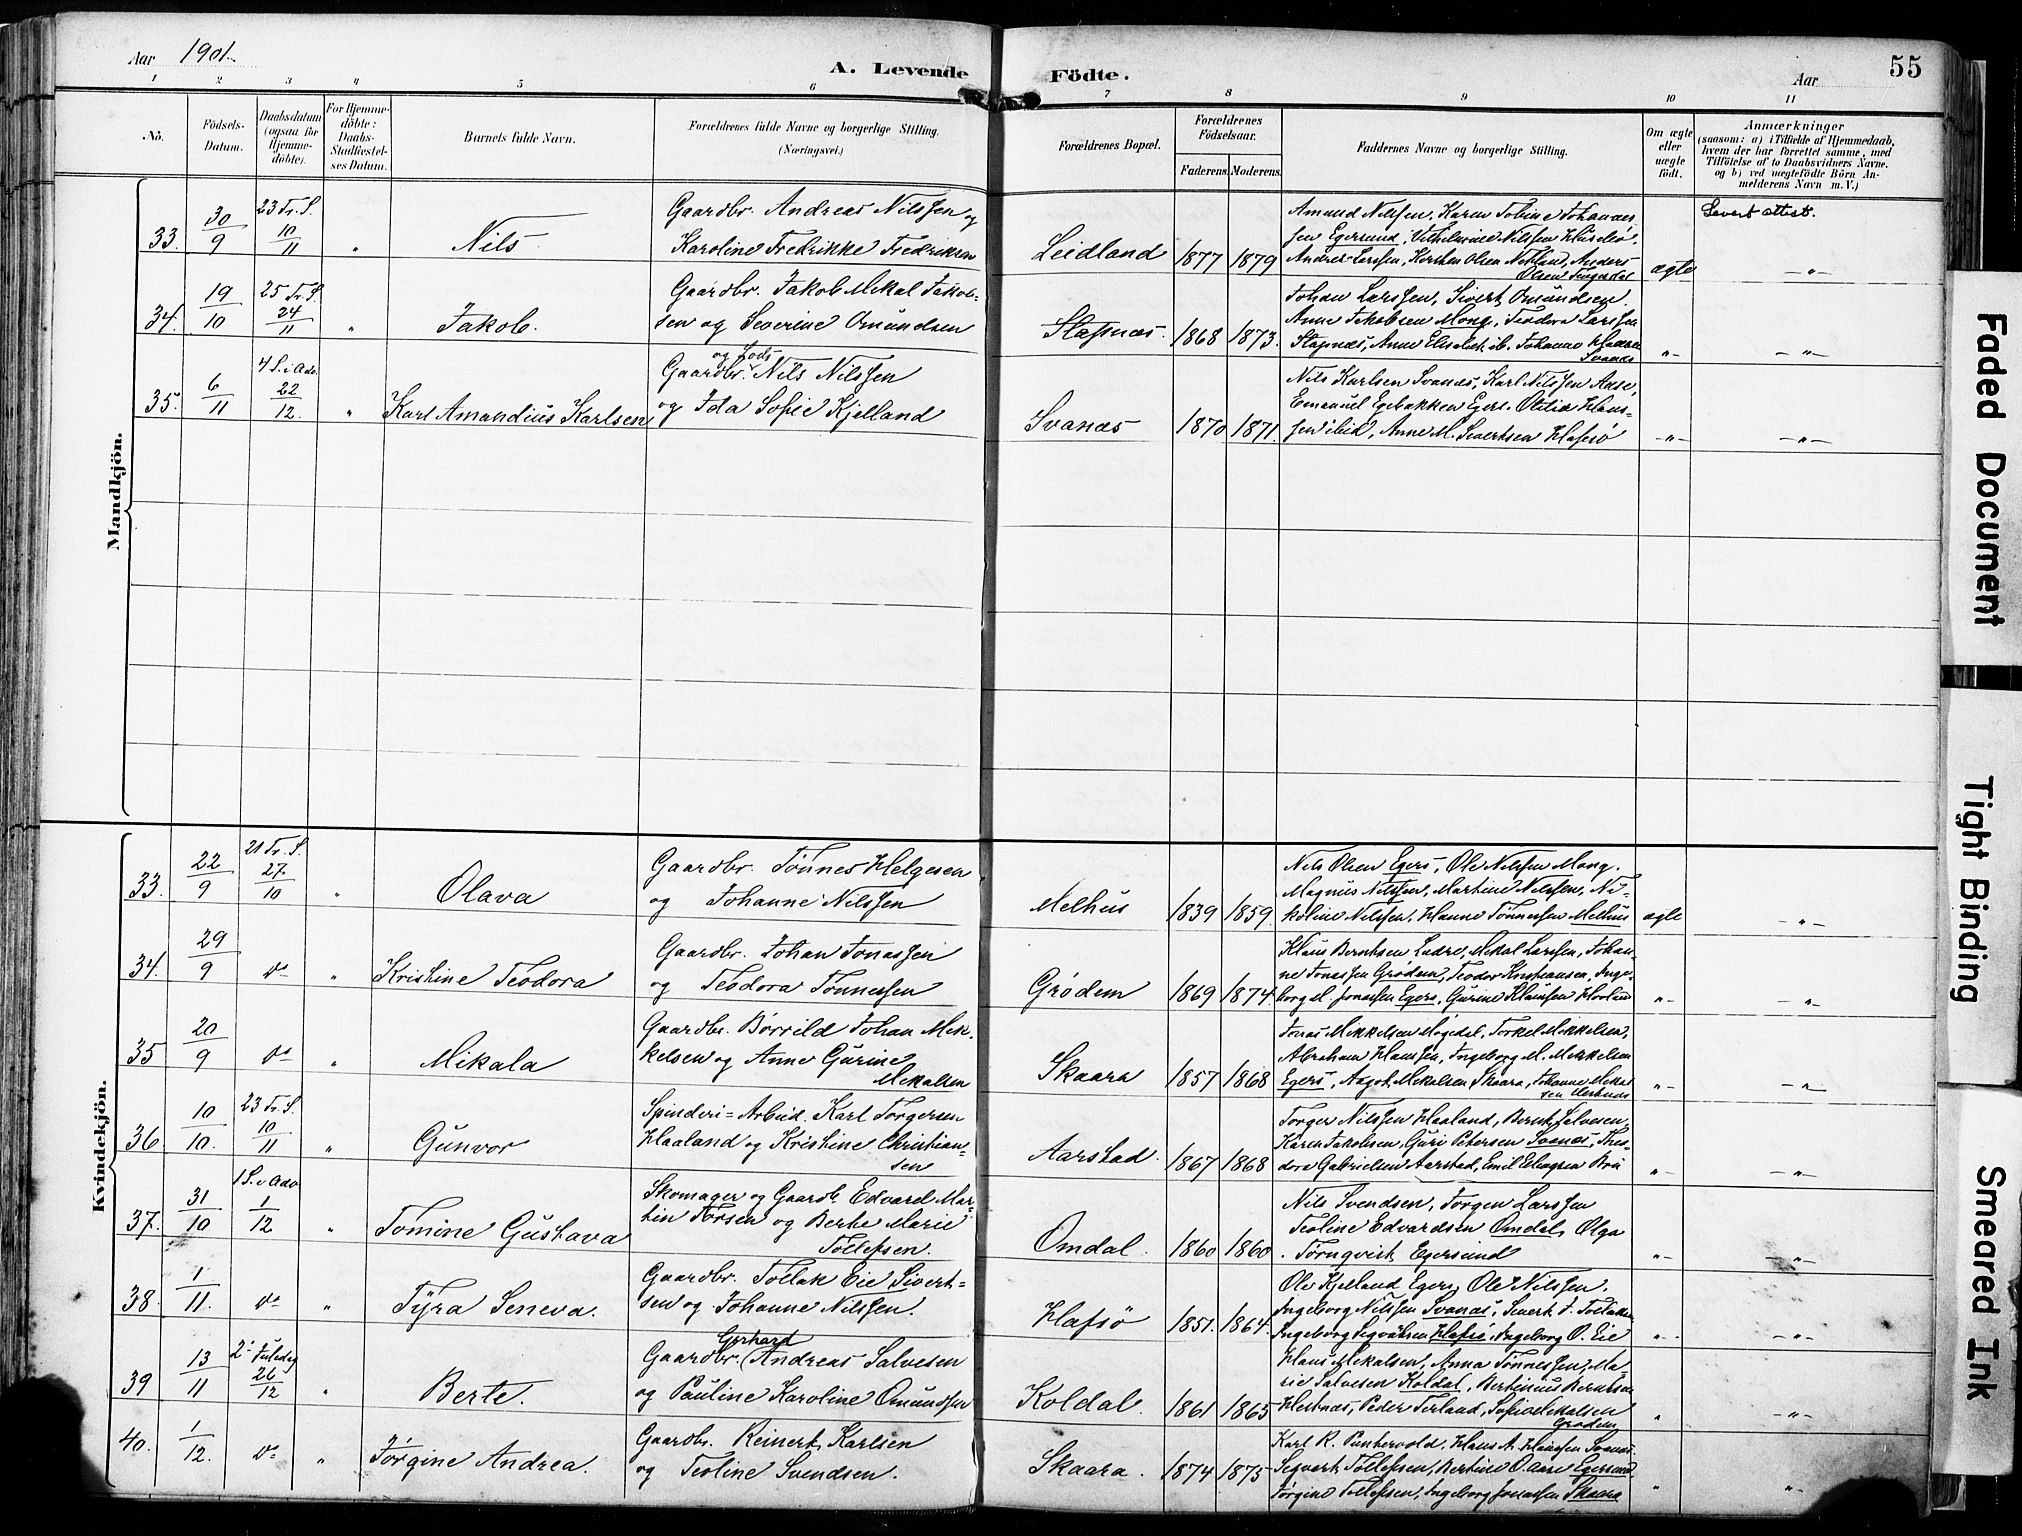 Aar 1901.
A. Levende Födte.
Aar
55
1 2 3 4 5 6 7 8 9 10 11
No.
Födsels-Datum.
Daabsdatum (ogsaa for Hjemmedöbte).
For Hjemmedöbte: Daabs-Stadfæstelses Datum.
Barnets fulde Navn.
Forældrenes fulde Navne og borgerlige Stilling.
(Næringsvei.)
Forældrenes Bopæl.
Forældrenes Födselsaar.
Faderens. Moderens.
Faddernes Navne og borgerlige Stilling.
Om ægte eller uægte födt.
Anmærkninger
(saasom: a) i Tilfælde af Hjemmedaab, hvem der har forrettet samme, med Tilföielse af to Daabsvidners Navne. og b) ved uægtefödte Börn Anmelderens Navn m. V.)
Mandkjön.
33. 30/9 23 Tr. S. 10/11 " Nils. Gaardbr. Andreas Nilssen og
Karoline Fredrikke Fredriksen Leidland 1877 1879 Amund Nilssen, Karen Tobine Johannes
sen Egersund, Vilhelmine Nilssen
Andreas Larssen, Kirsten Olsen Nodland, Anders
Olsen ægte Levert attest. -"-
34. 19/10 25 Tr. S. 24/11 " Jakob. Gaardbr. Jakob Mekal Jakob-
sen og Severine Omundsen Stapnæs. 1868 1873. Johan Larssen, Sivert Omundsen.
Anne Jakobsen Mong, Teodora Larssen
Stapnæs, Anne Elisabet ib. Johanne
Svanæs -"- -"-
35. 6/11 4 S. i Adv. 22/12. " Karl Amandius Karlsen Gaardbr. og Nils Nilssen
og Ida Sofie Kjelland Svanæs 1870 1871. Nils Karlsen Svanæs, Karl Nilssen Aase,
Emanuel Egebakken Egers. Otilia Hans-
sen ibid, Anne M. Sivertsen Hafsö -"- -"-
Kvindekjön.
33. 22/9 21 Tr. S. 27/10 " Olava Gaardbr. Tønnes Helgesen
og Johanne Nilssen Melhus 1839 1859. Nils Olsen Egers, Ole Nilssen Mong.
Magnus Nilssen, Martine Nilssen, Ni-
koline Nilssen, Hanne Tønnessen Melhus ægte -"-
34. 29/9 do " Kristine Teodora Gaardbr. Johan Jonassen
og Teodora Tønnessen Grødem 1869 1874 Klaus Berntsen Ludre, Mekal Larssen, Johan-
ne Jonassen Grødem, Teodor Kristiansen, Inge-
borg M. Jonassen Egers, Gurine Klaussen -"- -"-
35 20/9 do " Mikala Gaardbr. Børrild Johan Mek-
kelsen og Anne Gurine
Mekalsen Skaara 1857 1868 Jonas Mekkelsen Møgedal, Torkel Mikkelsen,
Abraham Hanssen, Ingeborg M. Mekkelsen
Egers, Aagot Mekalsen Skaara, Johanne Mekal
sen -"- -"-
36 10/10. 23 Tr. S. 10/11 " Gunvor Spinderi-Arbeid. Karl Torgersen
Haaland og Kristine Christian-
sen Aarstad. 1867 1868 Torger Nilssen Haaland, Bernt Salvesen,
Karen Jakobsen, Guri Petersen Svanæs, Theo
dora Gabrielsen Aarstad, Emil -"- -"-
37. 31/10 1 S. i Adv. 1/12 " Tomine Gustava Skomager og Gaardb. Edvard Mar-
tin Torsen og Berte Marie
Tollefsen. Omdal. 1860 1860 Nils Svendsen, Jørgen Larssen
Teoline Edvardsen Omdal, Olga
Törnqvist Egersund -"- -"-
38. 1/11. do " Tÿra Seneva. Gaardbr. Tollak Eie Sivert-
sen og Johanne Nilssen. Hafsö 1851. 1864. Ole Kjelland Egers, Ole Nilssen.
Ingeborg Nilssen Svanæs, Sivert T. Tollaksen
Ingeborg Sigvalsen Hafsö, Ingeborg O. Eie -"- -"-
39 13/11 2 Juledag 26/12 " Berte. Gaardbr. Gerhard Andreas Salvesen
og Pauline Karoline Omundsen Koldal. 1861 1865 Hans Mekalsen, Anna Tønnessen, Ma-
rie Salvesen Koldal, Bertinius Berntsen
Hestnæs, Peder Terland, Sofie Mekalsen
Grødem " -"-
40. 1/12. do " Jørgine Andrea. Gaardbr. Reinert Karlsen
og Teoline Svendsen. Skaara. 1874 1875 Karl R. Puntervold, Hans A. Hanssen Svanæs.
Sigvart Tollefsen, Bertine O. Aase Egersund
Jørgine Tollefsen, Ingeborg Jonassen Skaara " -"-
Faded Document
Tight Binding
Smeared Ink